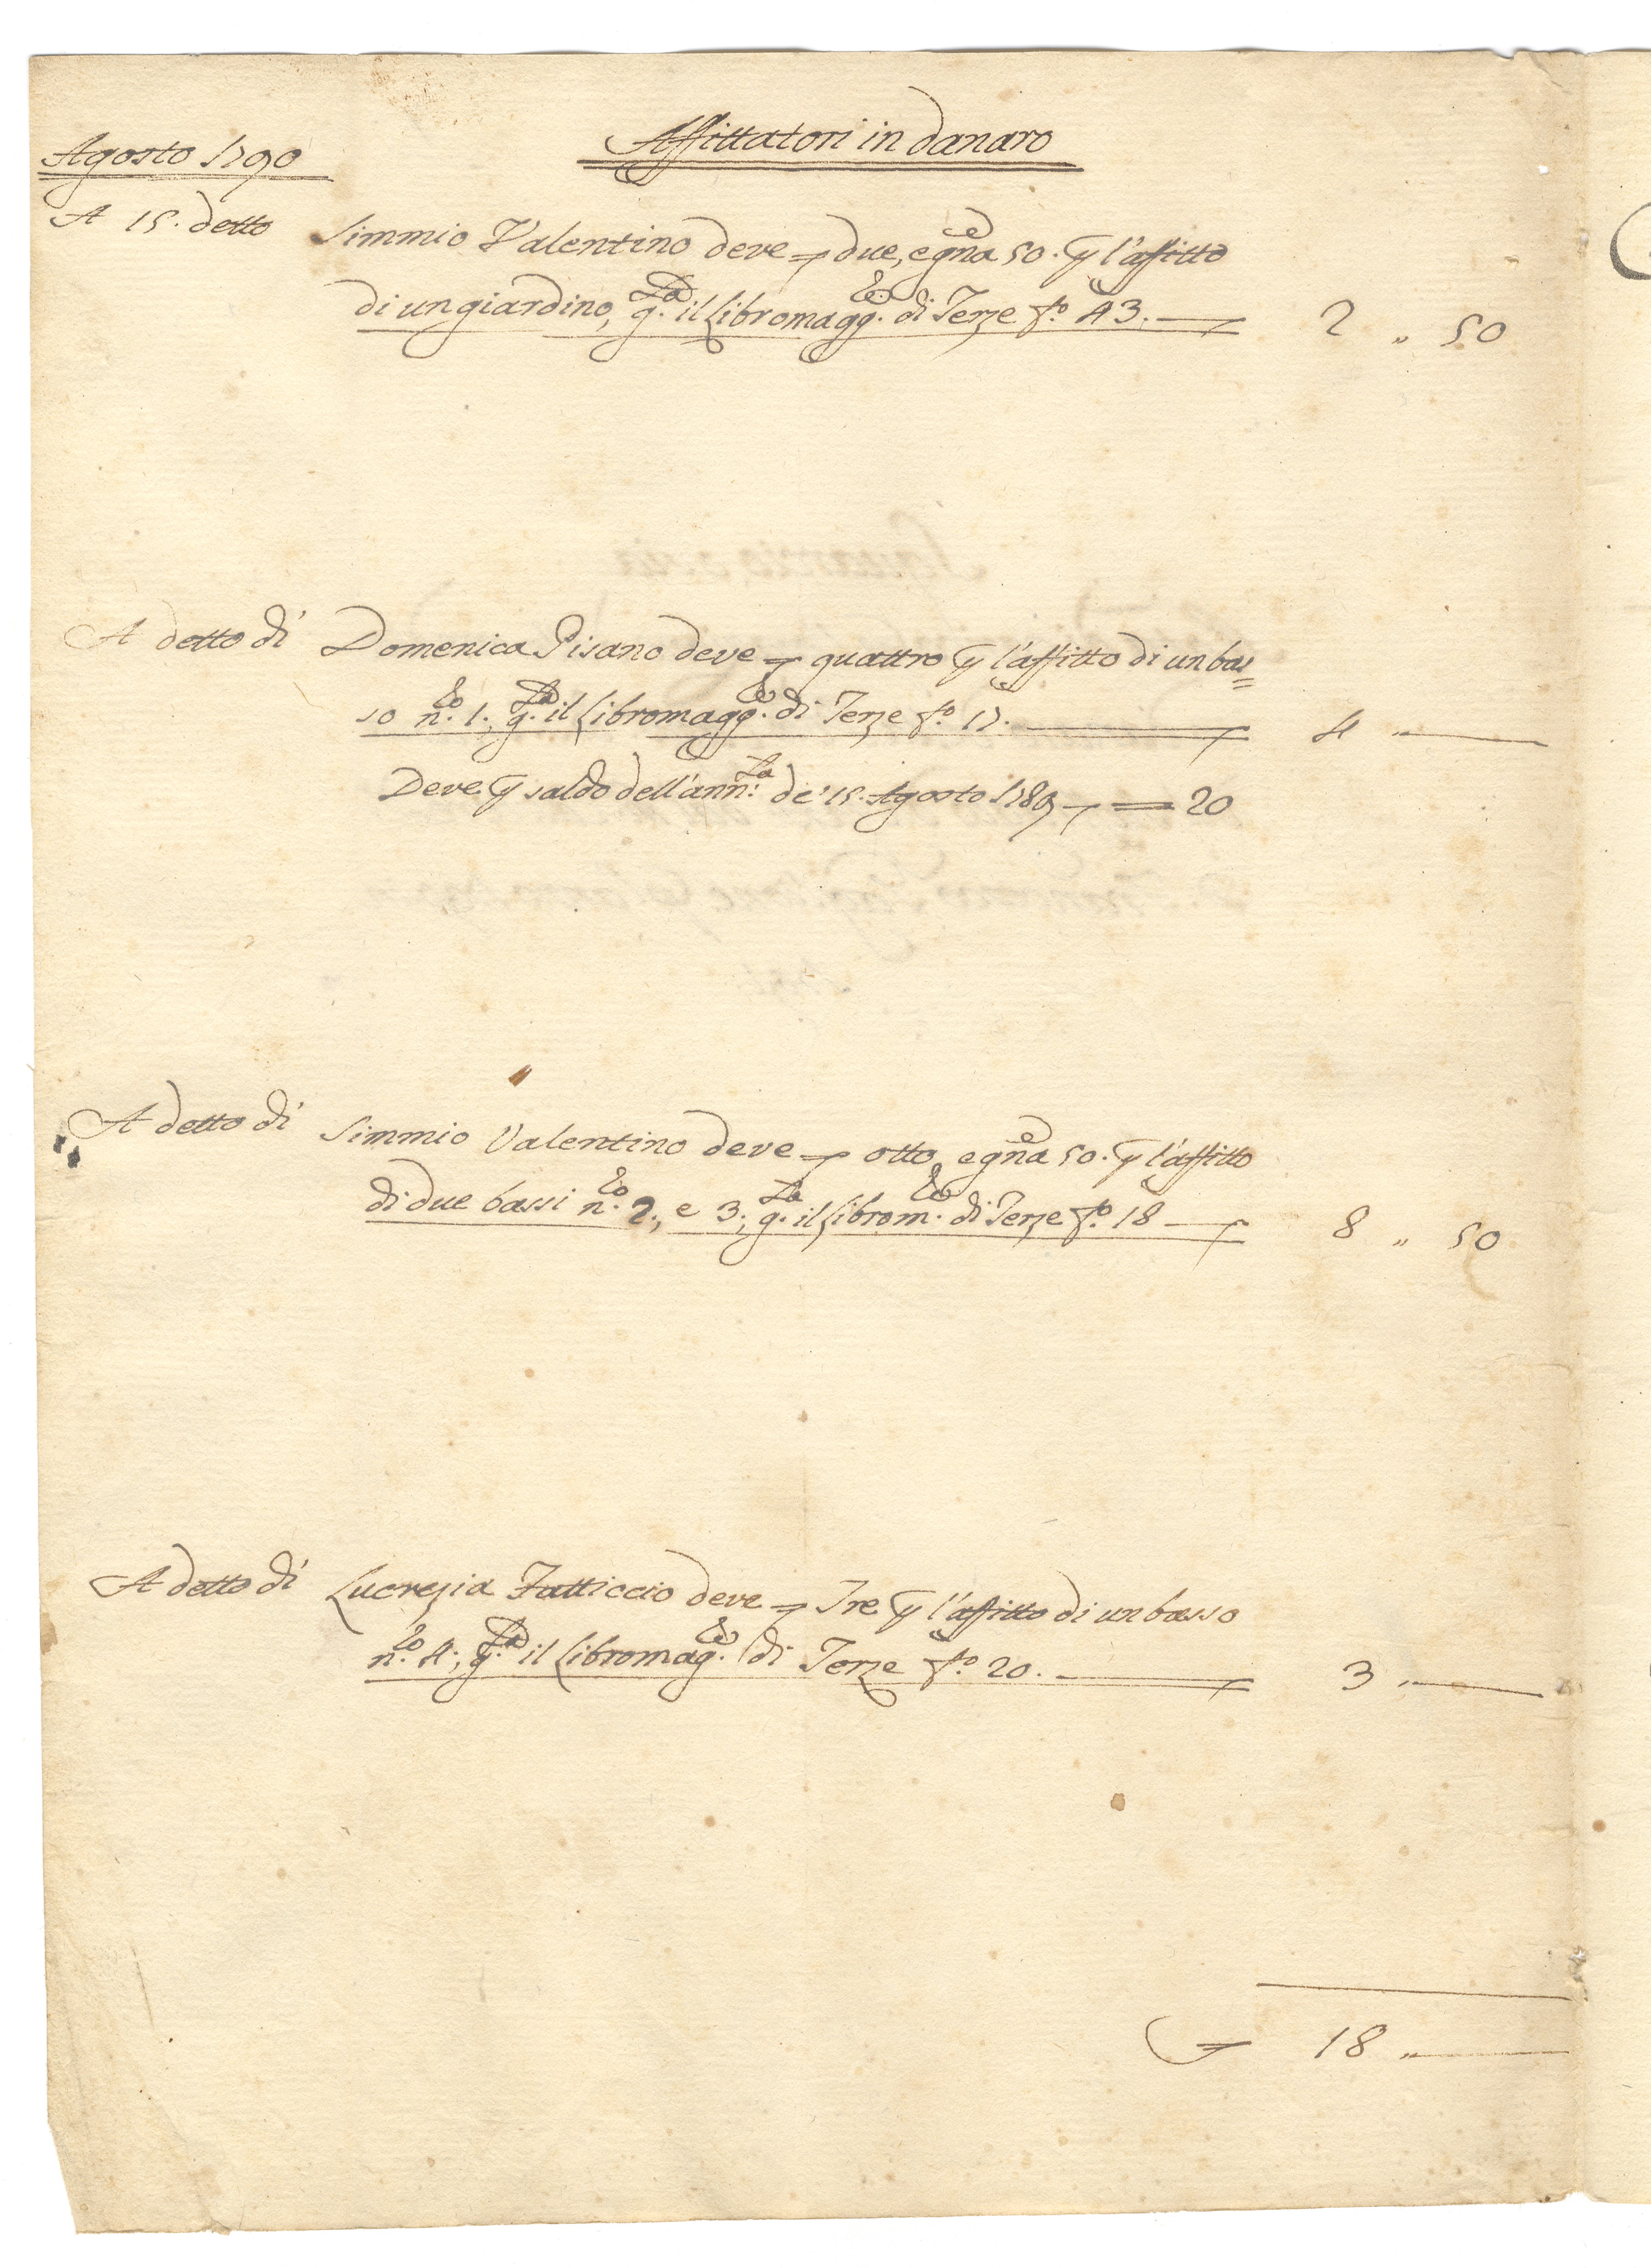 Affittatori in danaro
Agosto 1790
A 15. detto Simmio Valentino deve due, e gna^e 50. p l'affitto
di un giardino, g.^ta il Libromagg.^re di Terze f.^o 43. — 2 „ 50
A detto dì Domenica Pisano deve quattro p l'affitto di un bas=
so n.^ro 1., g.^ta il Libromagg.^re di Terze f.^o 17. — 4 „ —
Deve p saldo dell'ann.^ta de' 15. Agosto 1789 — = 20
A detto dì Simmio Valentino deve otto, e gna^e 50. p l'affitto
di due bassi n.^ro 2., e 3., g.^ta il Librom.^re di Terze f.^o 18 — 8 „ 50
A detto dì Lucrezia Fatticcio deve Tre p l'affitto di un basso
n.^ro 4., g.^ta il Libromag.^re di Terze f.^o 20. — 3 „ —
18 „ —